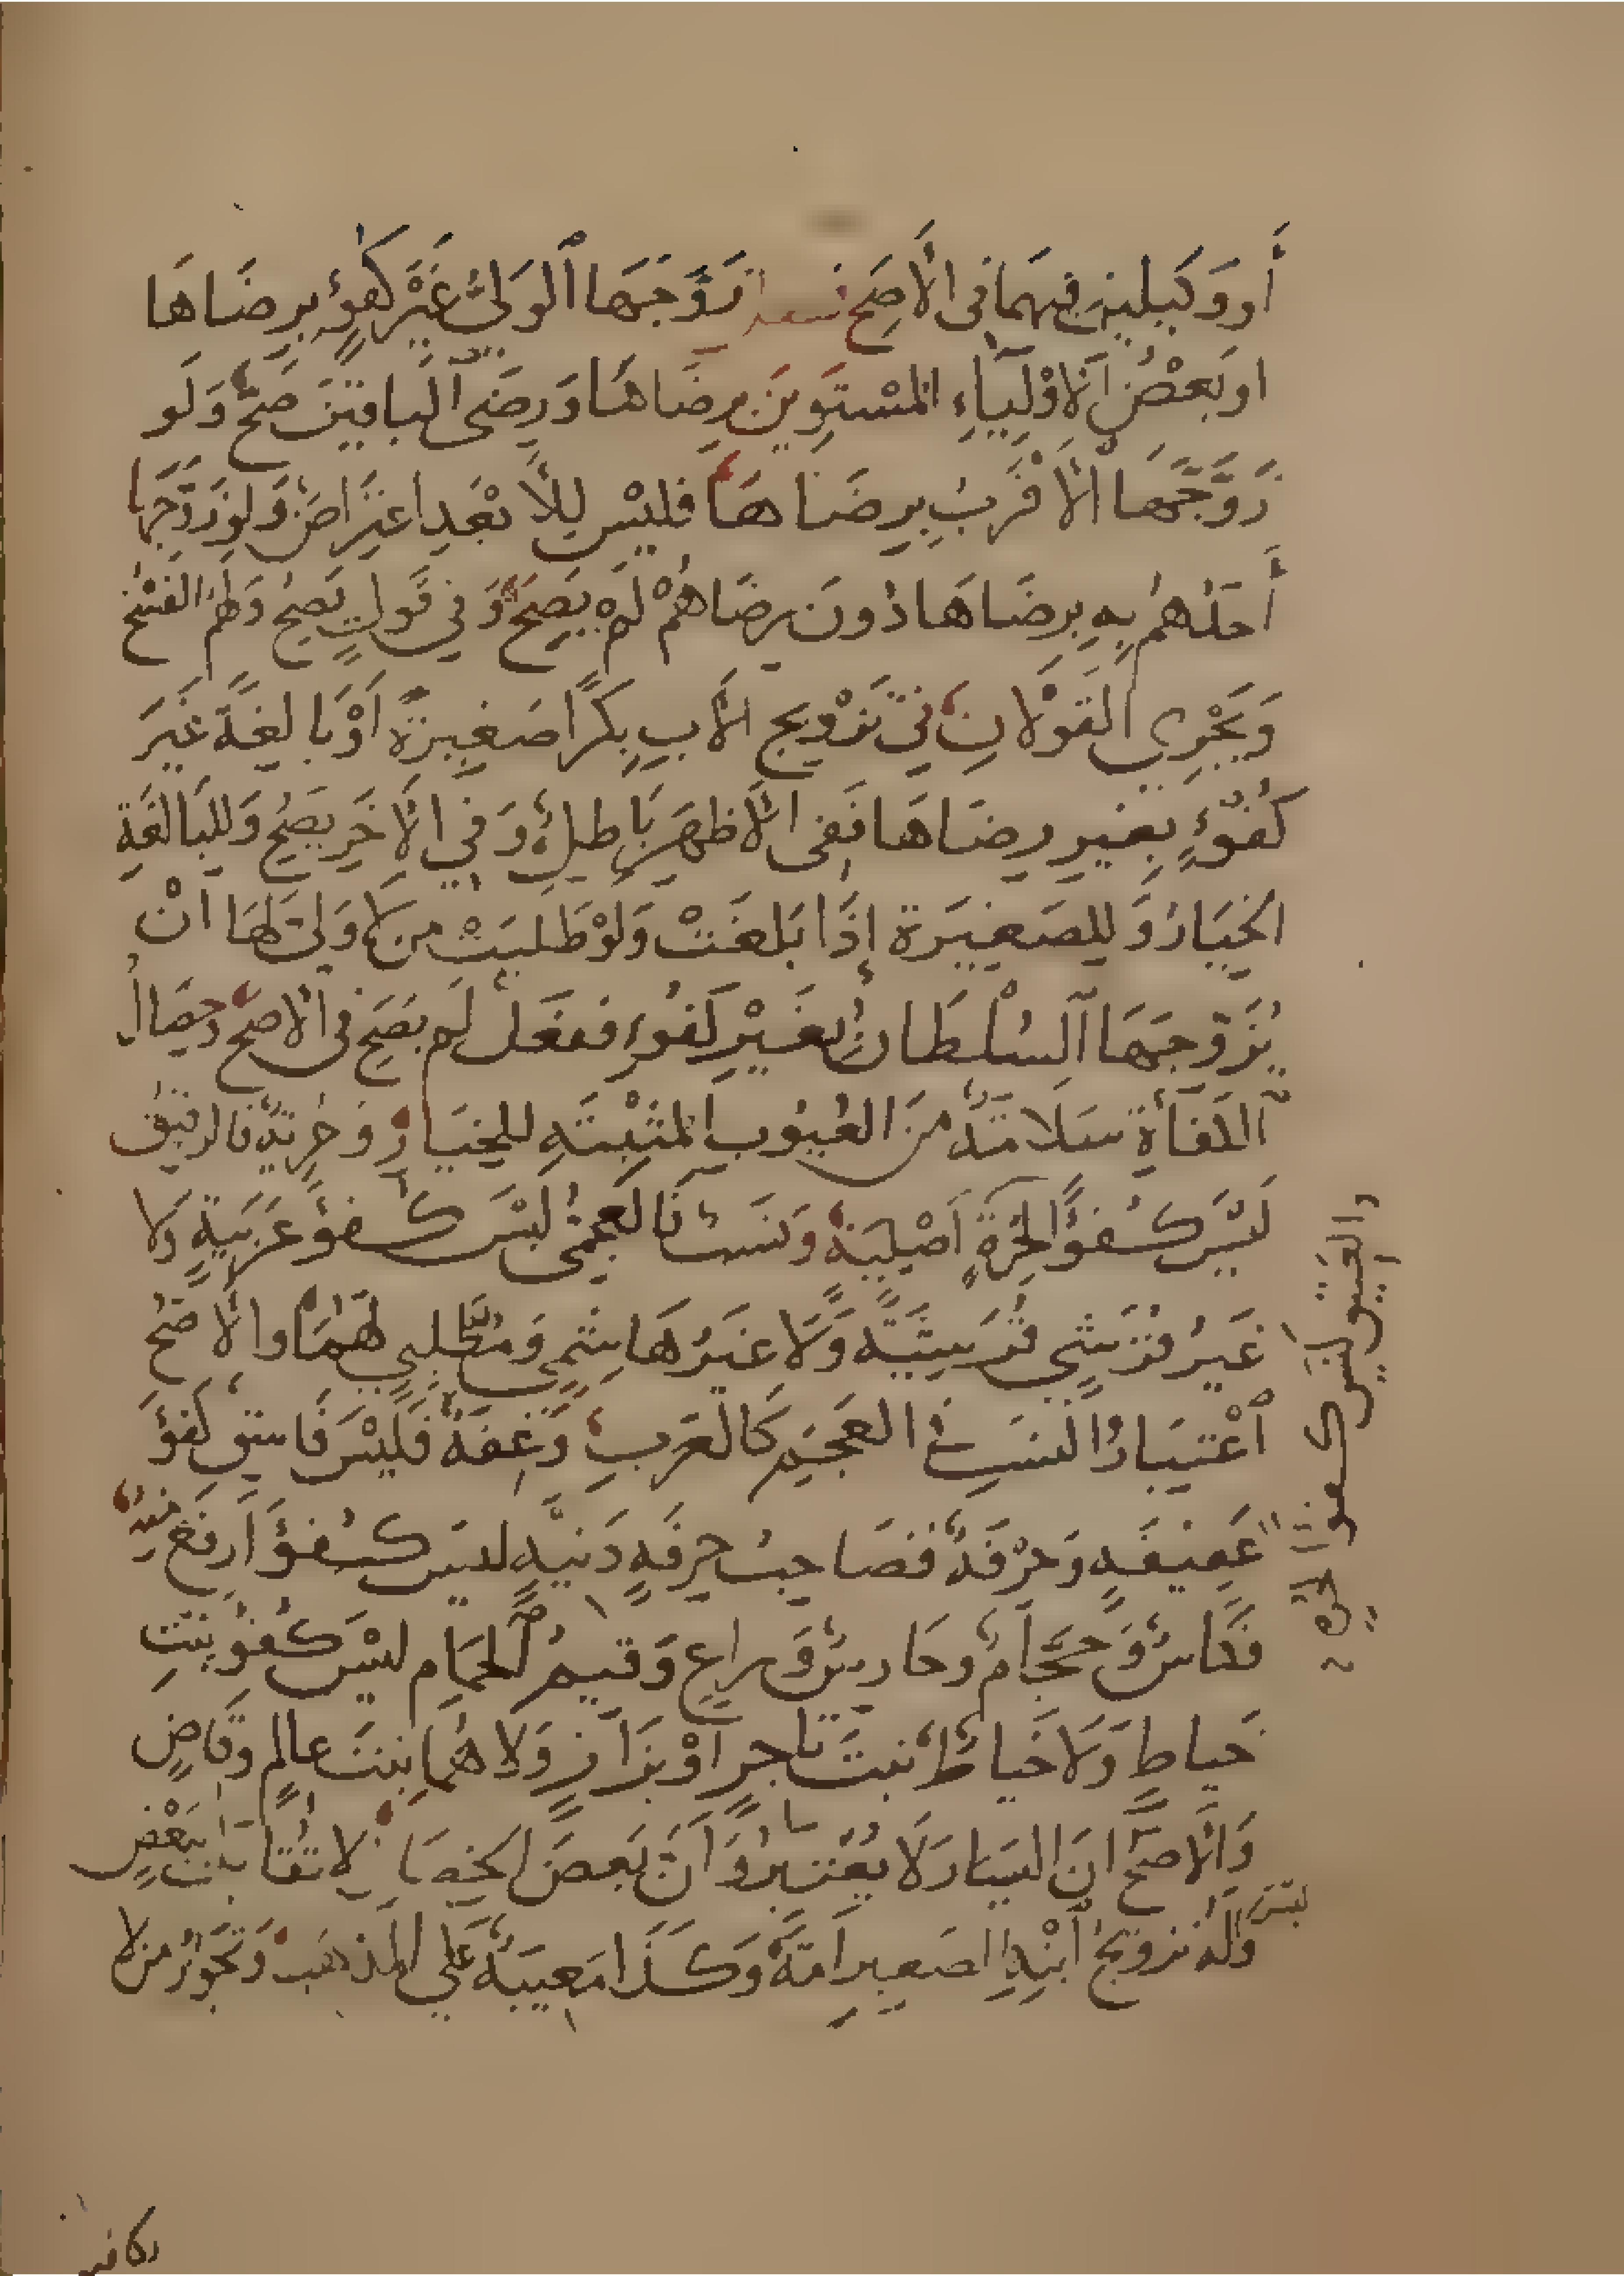 أو وَكيلين فيهما في الأصَحِ فصل زَوَّجَهَا ٱلوَلِيُّ غَيْرَ كفوٍء بِرِضَاهَا
او بَعْضُ اَلاوْلِيَاءِ المسْتَوِينَ بِرِضَاهَا وَرِضَى البَاقِيْنَ صَحَّ وَلَو
زَوَّجَهَا الأقرَبُ بِرِضَاهَا فليْسَ لِلأَبْعَدِ اعتِرَاضٌ وَلو زَوَّجَهَا
أحَدُهُمْ بِهِ بِرِضَاهَا دُونَ رِضَاهُمْ لَمْ يَصِحَّ وَفي قَولٍ يَصِحُ وَلهُمُ الفَسْخُ
وَيَجْرِي القَوْلانِ في تَزْويج الأَبِ بِكرًا صَغِيرَةً اَوْ بَالِغَةً غَيرَ
كُفْؤٍ بِغَيرِ رِضَاهَا فَفي الأَظهَر بَاطِلٌ وَفي الأَخَرِ يَصِحُ وَلِلبَالغَةِ
الخِيَارُ وَلِلصَغِيَرة إِذَا بَلغَتْ وَلَوْ طَلبَتْ مَن لا وَليَّ لَهَا انْ
يُزَوّجَهَا السُلْطَانُ بغَيْرِ كفُوءٍ ففعَلَ لَم يَصِحَ في الأَصَحِّ وَخِصَالُ
الكفَأَةِ سَلامَةٌ منَ العُيُوبِ المُثبْتَةِ للخِيَارِ وَحُرِيّةٌ فالرقيقُ
لَيْسَ كُفؤًا لِحُرةٍ اَصْلِيَةٍ وَنَسَبٌ فَالعَجَمِيُّ لَيْسَ كُفؤَ عَرَبَيةٍ وَلا
غَيرُ قُرَشِيٍ قُرَشِيَّةً وَلَا غيَرُ هَاشِمِيٍ وَمُطَّلِبِيٍ لَهُمَا والأَصَحُّ
ٱعْتِبَارُ النَسَبِ في العَجَمِ كَالعَرَبِ وَعِفَةٌ فَلَيْسَ فَاسِقٌ كفؤَ
عَفِيْفَةٍ وَحِرْفَةٌ فصَاحِبُ حِرفَةٍ دَنيّةٍ لَيسَ كُفؤَ اَرفَعَ منهُ
فكَناسٌ وَحَجَّامٌ وحَارِسٌ وَرَاعٍ وَقَيمُ الحَمَامِ ليْسَ كُفؤَ بِنتِ
خَياطٍ وَلَا خَياطٌ بنتَ تاجِرٍ اوْ بَزَازٍ وَلا هُمَا بِنتَ عالِمٍ وقَاضٍ
وَالأصَحُّ انَ اليَسَارَ لَا يُعْتبَرُ وَأَنَّ بَعضَ الخِصَالِ لا تُقَابَلُ ببَعْضٍ
وَليْسَ لَهُ تزويجُ ابْنِهِ الصَغِيرِ اَمَةً وَكَذا مَعِيبَةٌ عَلي المذهَب وَتَجُوزُ من لا
والعَتيق ليْسَ كُفوًا لحرةٍ
تكافيه